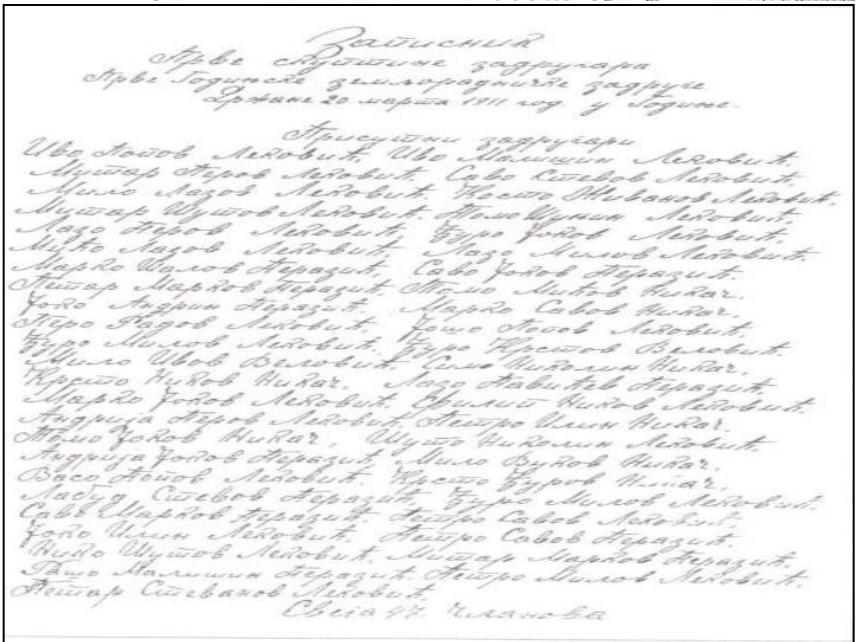 Записник
Прве скупштине задругара
Прве Годињске земљорадничке задруге
Држане 20 марта 1911 год. у Годиње.
Присутни задругари
Иво Попов Лековић, Иво Малишин Лековић,
Мушар Перов Лековић, Саво Стевов Лековић,
Мило Лазов Лековић, Крсто Живанов Лековић,
Мушар Шутов Лековић, Томо Лековић,
Лазо Перов Лековић, Ђуро Јоков Лековић,
Мићо Лазов Лековић, Лазо Милов Лековић,
Марко Перазић, Саво Јоков Перазић.
Петар Марков Перазић, Томо Митов Никач.
Јоко Андрин Перазић. Марко Савов Никач.
Перо Радов Лековић, Јошо Попов Лековић.
Ђуро Милов Лековић. Ђуро Крстов Веловић.
Мило Ивов Веловић, Симо Николин Никач.
Крсто Ников Никач. Лазо Перазић.
Марко Јоков Лековић. Филип Ников Лековић.
Андрија Перов Лековић, Петро Илин Никач.
Томо Јоков Никач. Шуто Николин Лековић.
Андрија Јоков Перазић, Мило Вуков Никач.
Васо Попов Лековић. Крсто Ђуров Никач.
Лабуд Стевов Перазић Ђуро Милов Лековић.
Саво Марков Перазић. Петро Савов Лековић.
Јоко Илин Лековић. Петро Савов Перазић.
Нико Шутов Лековић. Митар Марков Перазић.
Машо Малишин Перазић. Петро Милов Лековић.
Петар Стеванов Лековић.
Свега 47. чланова